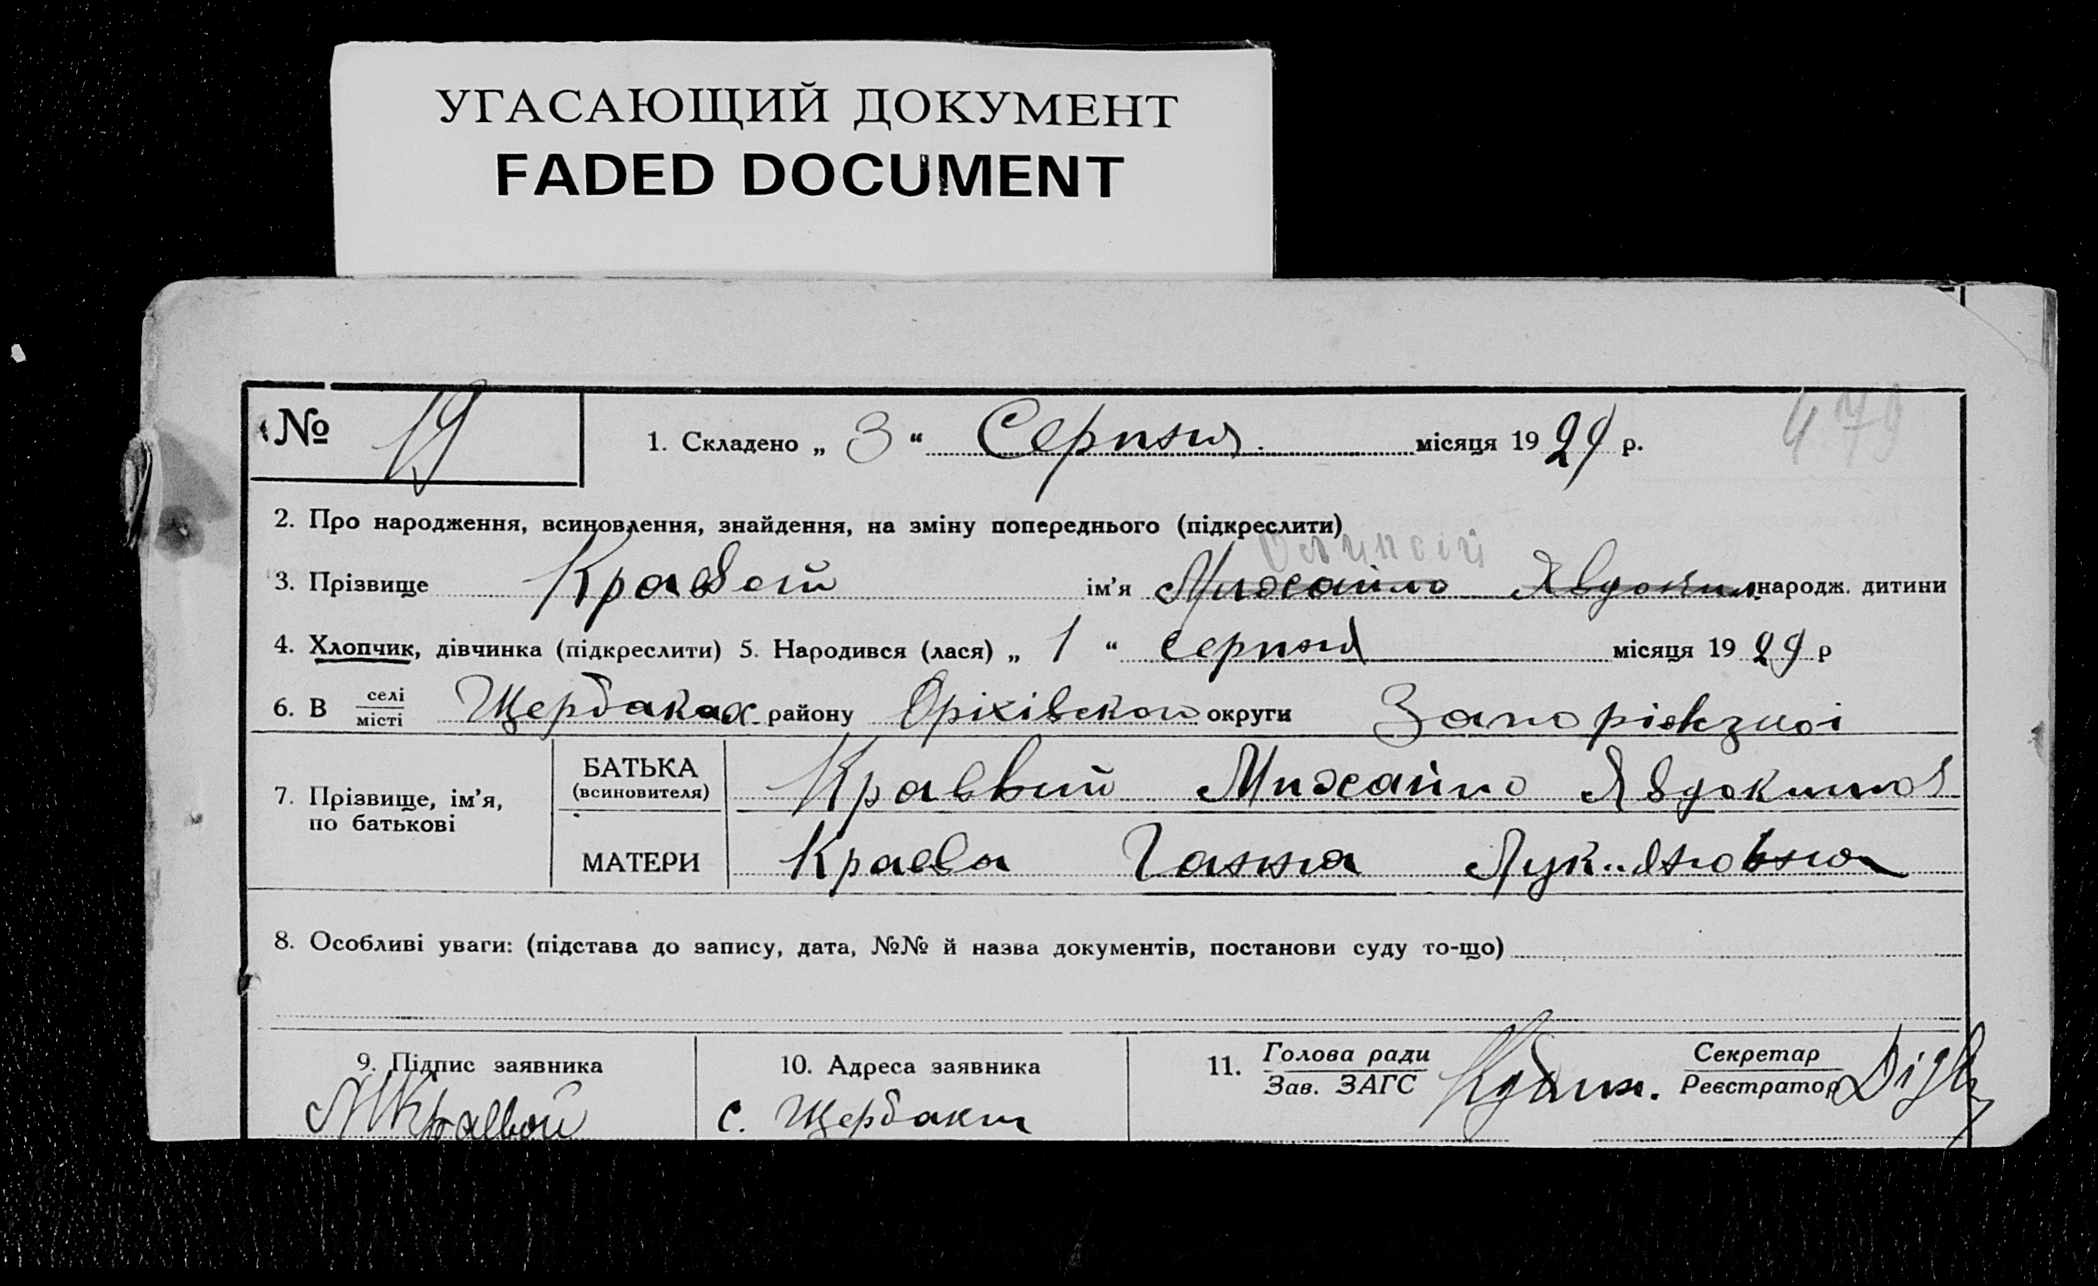 УГАСАЮЩИЙ ДОКУМЕНТ
FADED DOCUMENT
479
№ 19
1. Складено „ 3 “ Серпня місяця 1929 р.
2. Про народження, всиновлення, знайдення, на зміну попереднього (підкреслити)
3. Прізвище Кравой ім’я Михайло Явдоким народж. дитини
4. Хлопчик, дівчинка (підкреслити) 5. Народився (лася) „ 1 “ серпня місяця 1929 р
6. В селі місті Щербаках району Оріхівського округи Запоріжзкої
7. Прізвище, ім’я, по батькові
БАТЬКА (всиновителя) Краввий Михайло Явдокимов
МАТЕРИ Краева Ганна Лук..яновна
8. Особливі уваги: (підстава до запису, дата, №№ й назва документів, постанови суду то-що)
9. Підпис заявника
10. Адреса заявника
с. Щербаки
11. Голова ради Зав. ЗАГС
Секретар Реєстратор